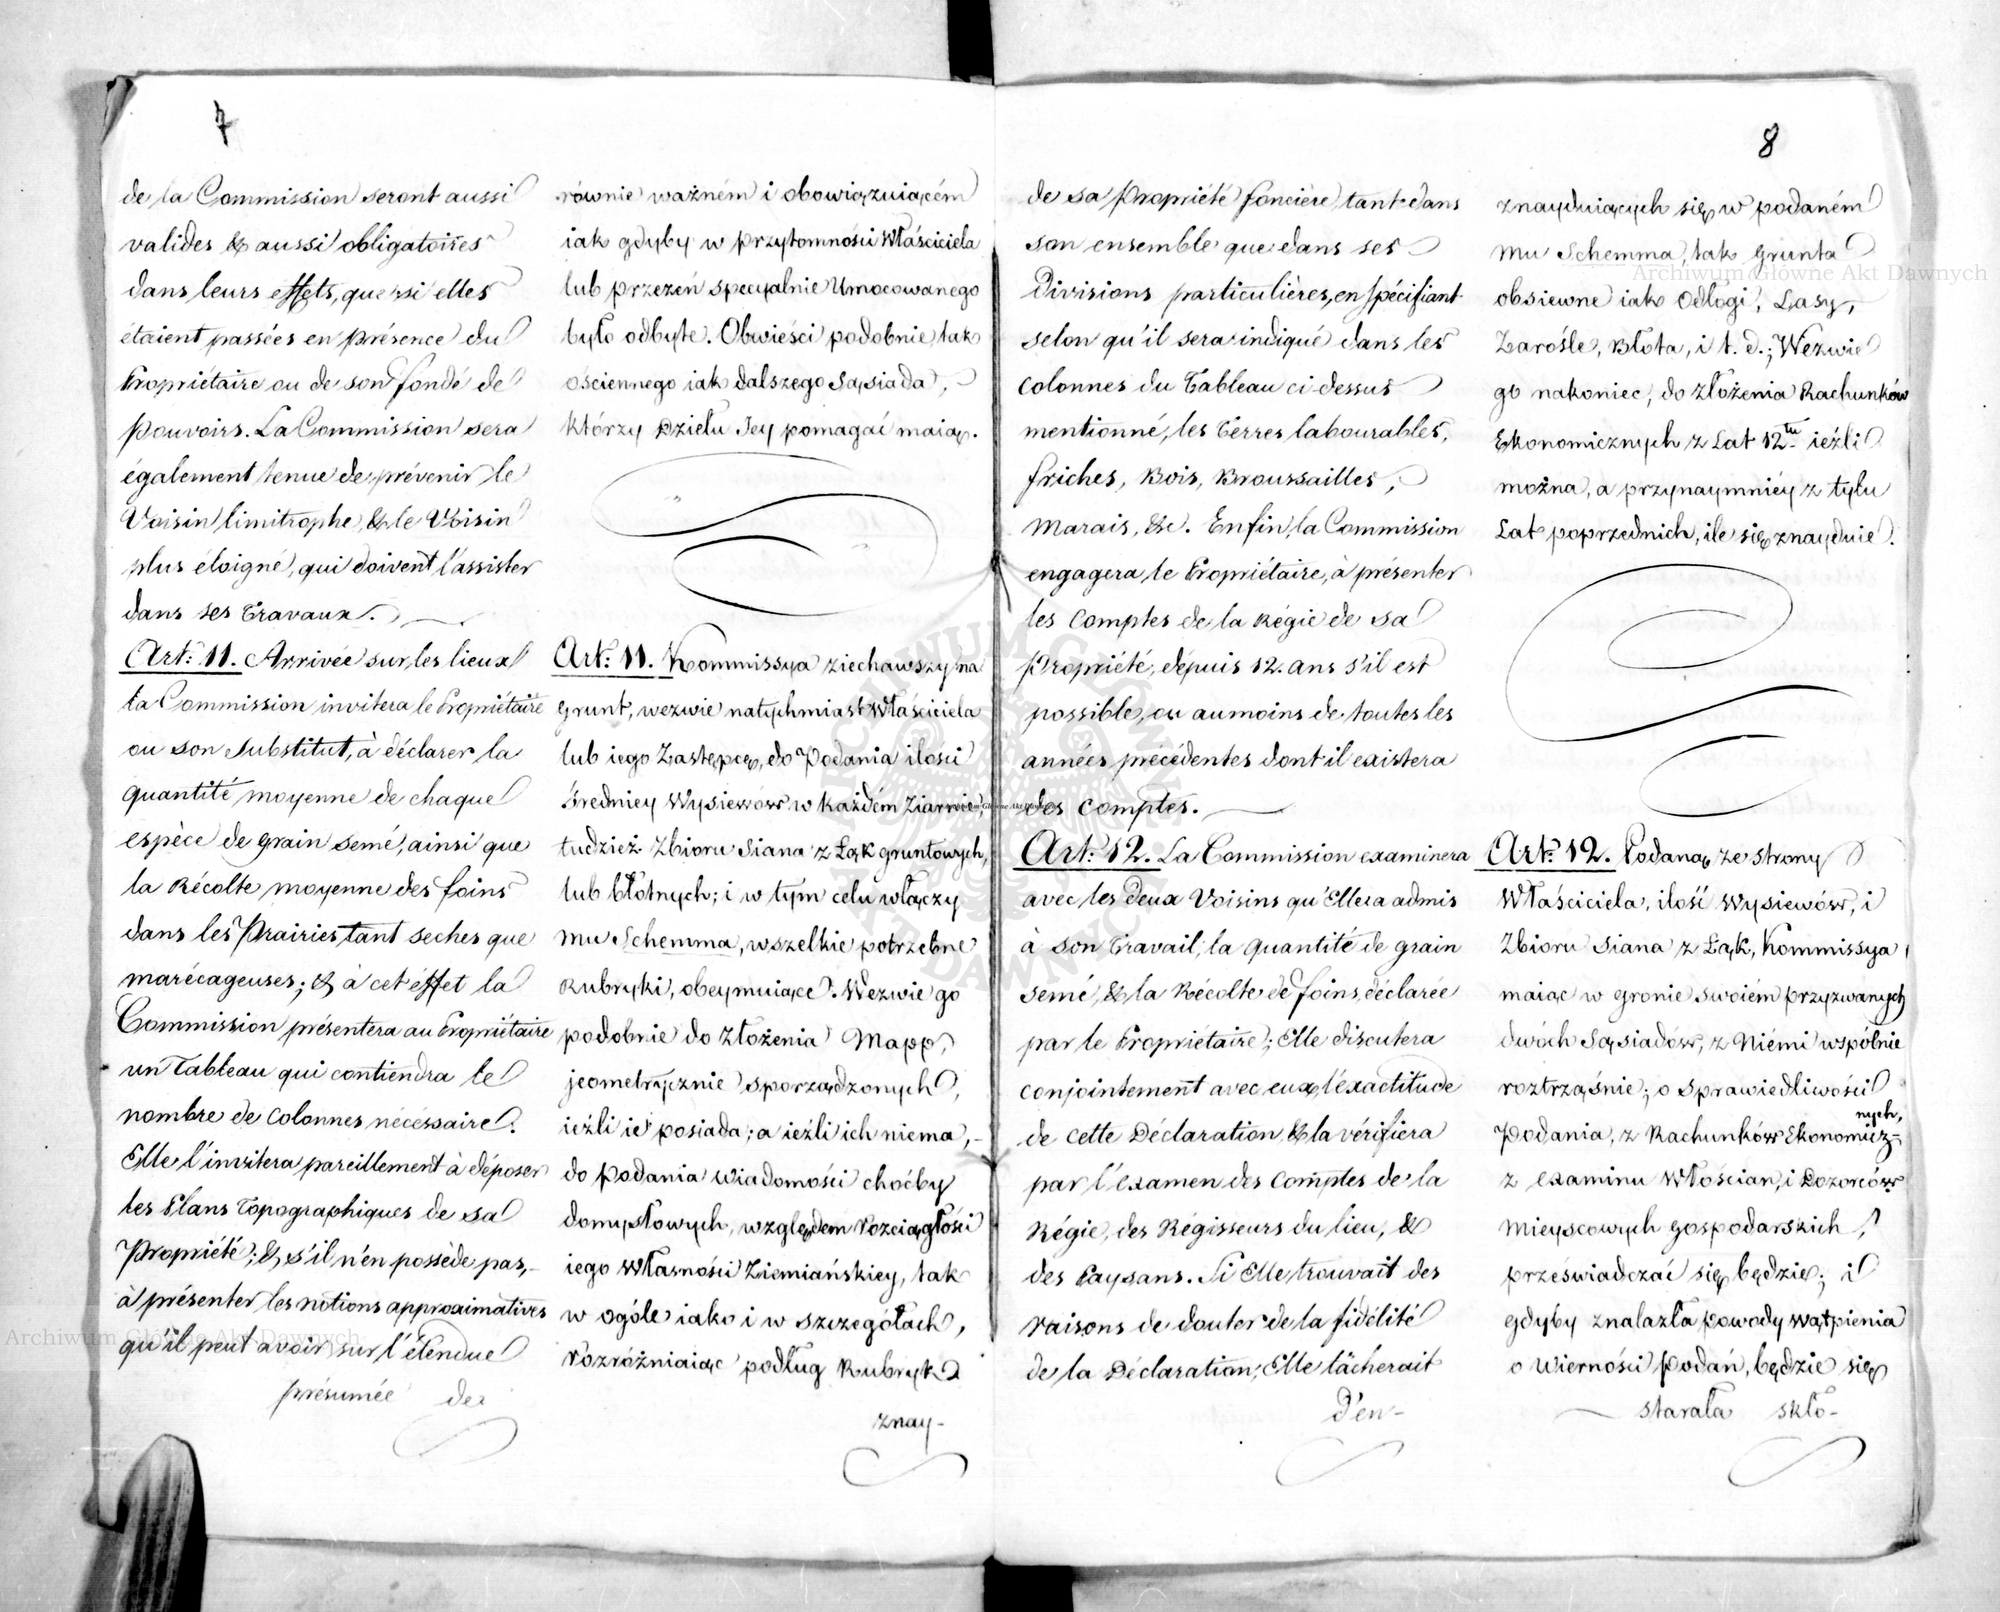 7
de la Commission seront aussi
valides & aussi obligatoires
dans leurs effets, que si elles
étaient passées en présence du
Propriétaire ou de son fondé de
pouvoirs. La Commission sera
également tenue de prévenir le
Voisin limitrophe, & le Voisin
plus éloigné, qui doivent l'assister
dans ses Travaux.
Art: 11. Arrivée sur les lieux
la Commission invitera le Propriétaire
ou son Substitut, à déclarer la
quantité moyenne de chaque
espèce de grain semé, ainsi que
la Récolte moyenne des foins
dans les Prairies tant seches que
marécageuses; & à cet effet la
Commission présentera au Propriétaire
un Tableau qui contiendra le
nombre de Colonnes nécéssaire.
Elle l'invitera pareillement à déposer
les Plans Topographiques de sa
Propriété; &, s'il n'en possède pas,
à présenter les notions approximatives
qu'il peut avoir sur l'étendue
présumée de
równie ważném i obowiązuiącém
iak gdyby w przytomności Właściciela
lub przezeń specyalnie Umocowanego
było odbyte. Obwieści podobnie tak
ościennego iak dalszego Sąsiada,
którzy Dziełu Jey pomagać maią.
Art: 11. Kommissya ziechawszy na
grunt, wezwie natychmiast Właściciela
lub iego Zastępcę, do Podania ilości
Średniey Wysiewów w każdém Ziarnie,
tudzież Zbioru Siana z Łąk gruntowych,
lub błotnych; i w tym celu włączy
mu Schemma, wszelkie potrzebne
Rubryki, obeymuiące. Wezwie go
podobnie do Złożenia Mapp,
jeometrycznie sporządzonych,
ieźli ie posiada; a ieźli ich niema,
do podania wiadomości choćby
domysłowych, względem rozciągłości
iego Własności Ziemiańskiey, tak
w ogóle iako i w szczegółach,
rozróżniaiąc podług Rubryk
znay-
8
de sa Propriété foncière, tant dans
son ensemble que dans ses
Divisions particulières, en spécifiant
selon qu'il sera indiqué dans les
colonnes du Tableau ci dessus
mentionné, les Terres labourables,
friches, Bois, Broussailles,
Marais, &c. Enfin, la Commission
engagera le Propriétaire, à présenter
les Comptes de la Régie de sa
Propriété, dépuis 12. ans s'il est
possible, ou au moins de toutes les
années précédentes dont il existera
des comptes.
Art: 12. La Commission examinera
avec les deux Voisins qu'Elle a admis
à son Travail, la quantité de grain
semé, & la Récolte de foins déclarée
par le Propriétaire; Elle discutera
conjointement avec eux, l'éxactitude
de cette Déclaration & la vérifiera
par l'examen des Comptes de la
Régie, des Régisseurs du lieu, &
des Paysans. Si Elle trouvait des
raisons de douter de la fidélité
de la Déclaration, Elle tâcherait
d'en-
znayduiących się w podaném
mu Schemma, tak Grunta
obsiewne iako Odłogi, Lasy,
Zarośle, Błota, i t. d.; Wezwie
go nakoniec, do Złożenia Rachunków
Ekonomicznych z Lat 12tu ieźli
można, a przynaymniéy z tylu
Lat poprzednich, ile się znayduie.
Art: 12. Podaną ze strony
Właściciela, ilość Wysiewów, i
Zbioru Siana z Łąk, Kommissya
maiąc w gronie swoiém przyzwanych
dwóch Sąsiadów, z Niémi wspólnie
roztrząśnie; o Sprawiedliwości
Podania, z Rachunków Ekonomicz-
nych,
z examinu Włościan, i Dozorców
mieyscowych gospodarskich,
przeświadczać się będzie; i
gdyby znalazła powody wątpienia
o wierności podań, będzie się
starała skło-
Archiwum Główne Akt Dawnych
Archiwum Główne Akt Dawnych